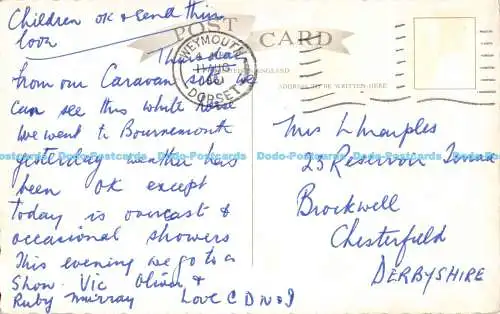 Children OK & send their
love
POST CARD
WEYMOUTH
DORSET
ENGLAND
ADDRESS TO BE WRITTEN HERE
Thursday
from our Caravan site we
can see this white horse
We went to Bournemouth
yesterday weather has
been OK except
today is overcast &
occasional showers
This evening we go to a
Show. Vic Oliver &
Ruby Murray Love C D N & J
Mrs L Marples
23 Reservoir Terrace
Brockwell
Chesterfield
DERBYSHIRE
Dodo-Postcards Dodo-Postcards Dodo-Postcards Dodo-Postcards Dodo-Postcards